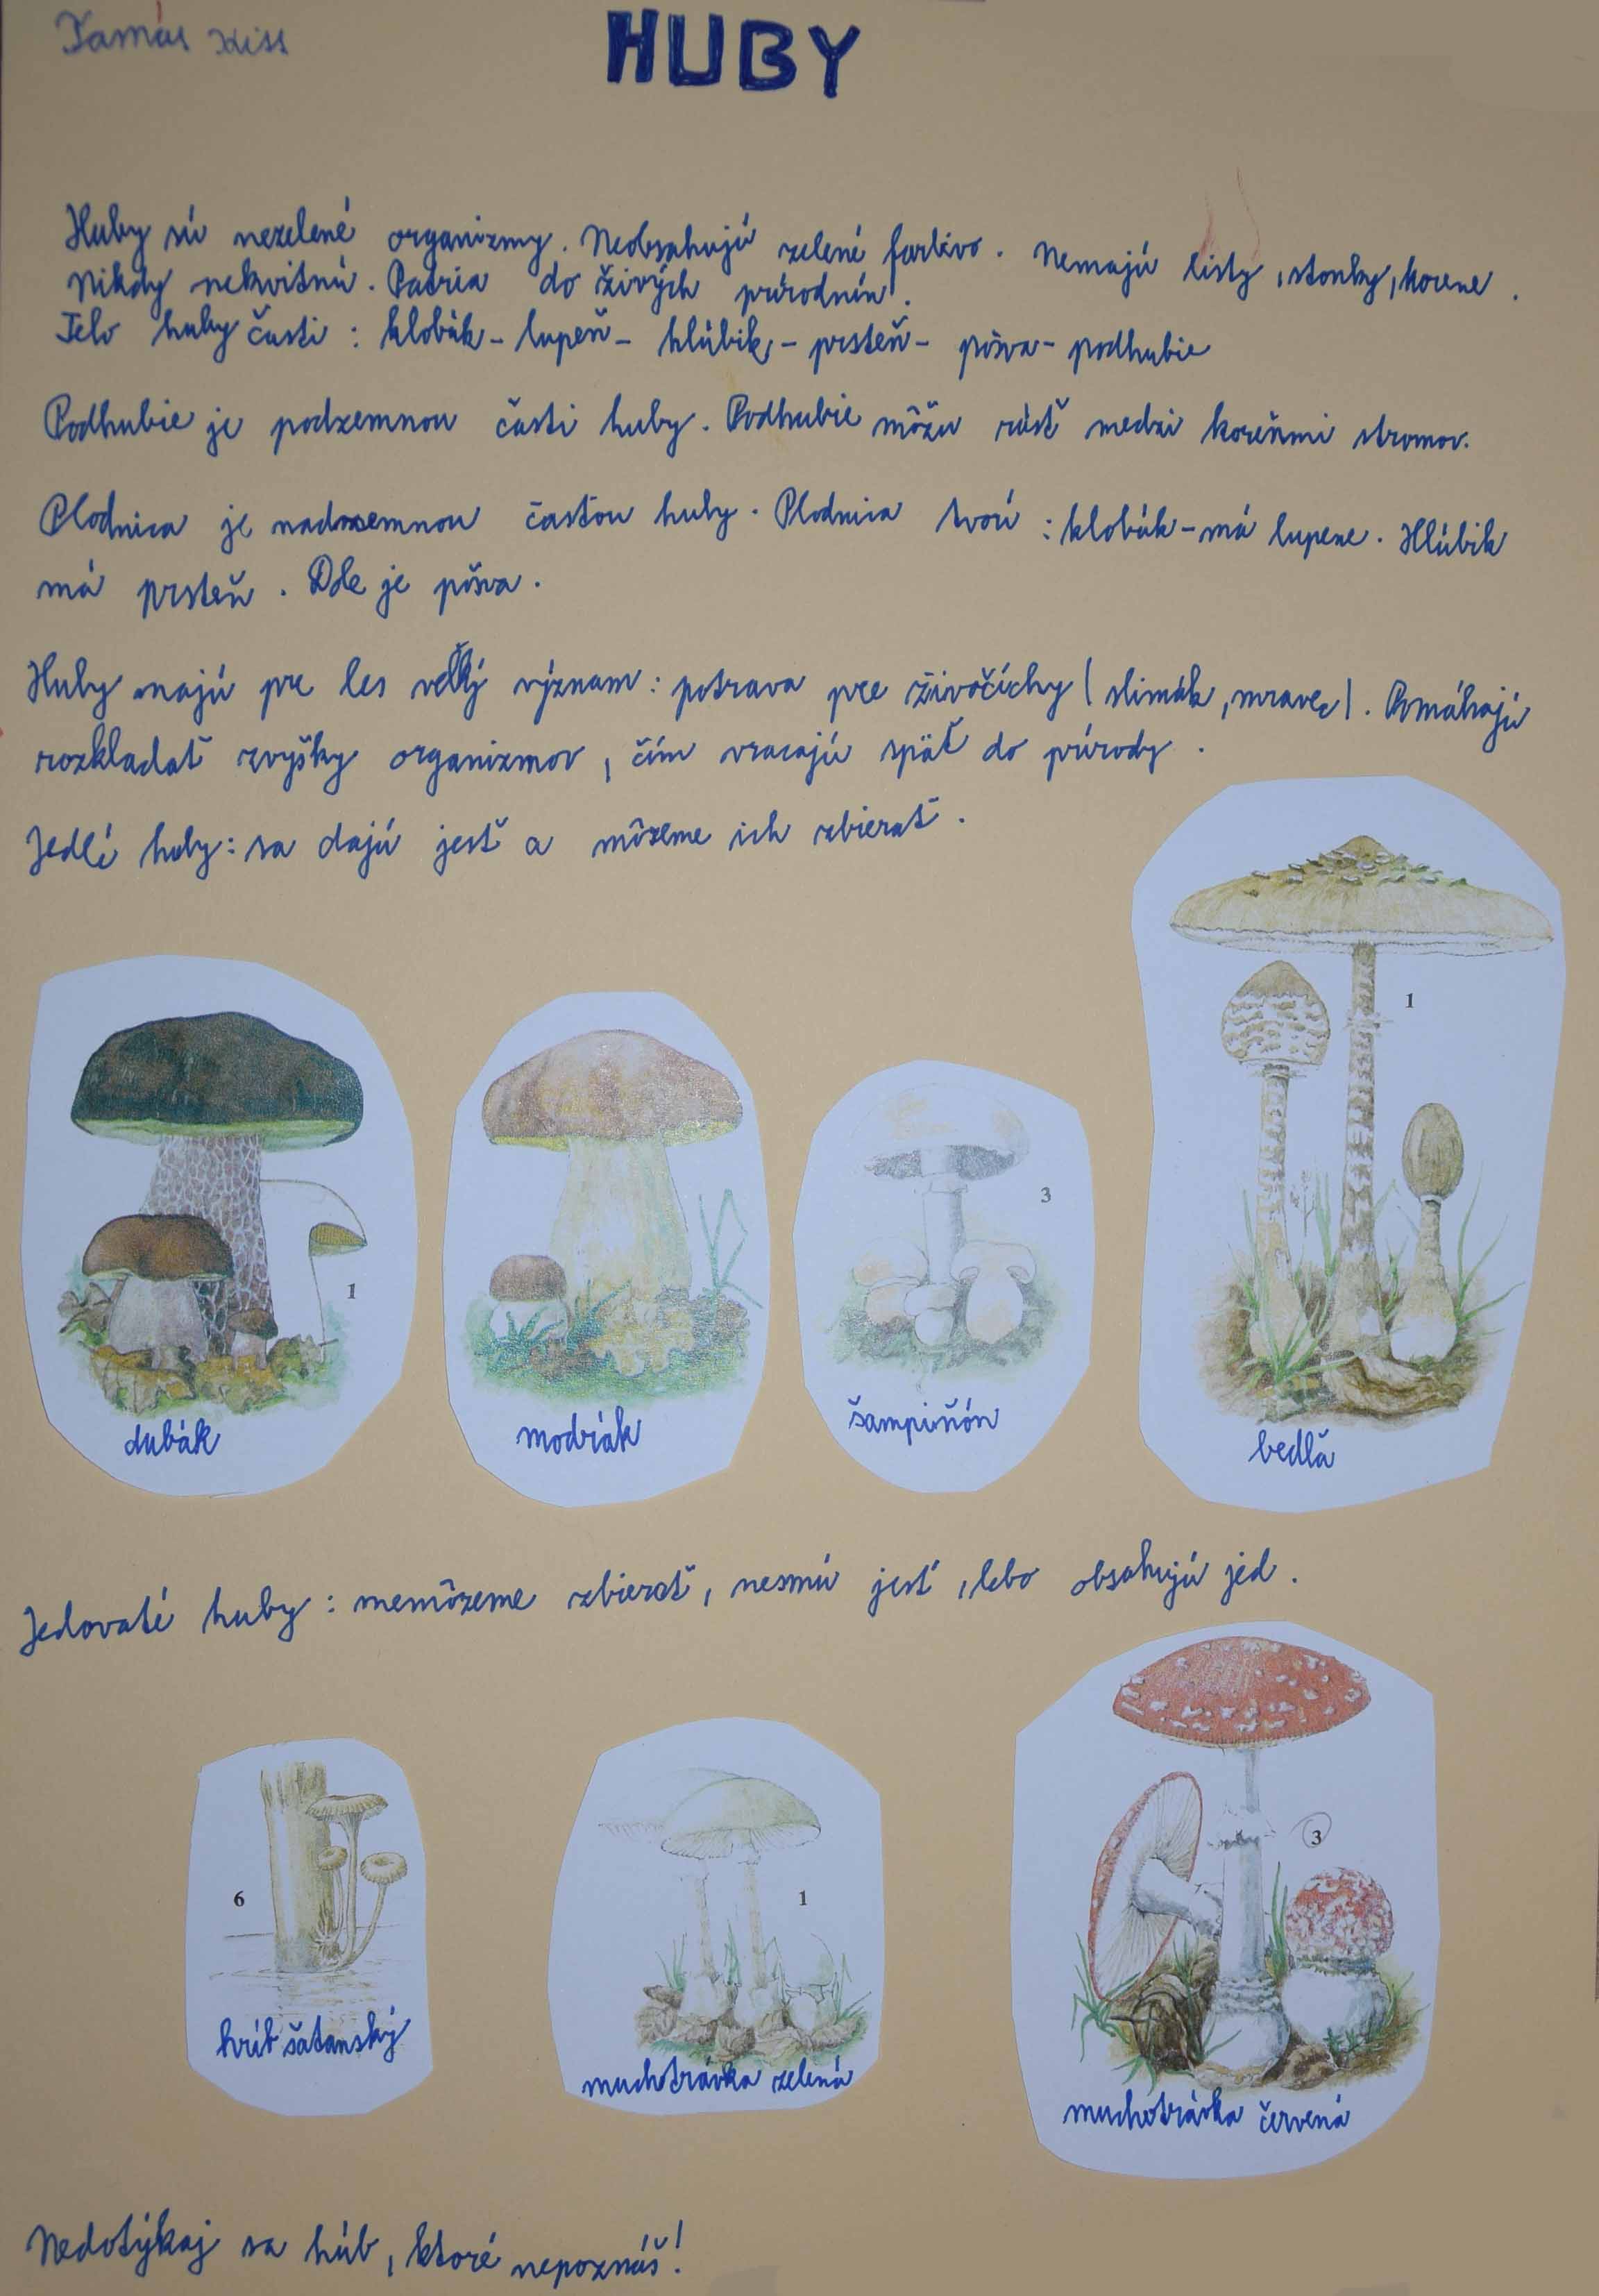 Tamás Kiss
HUBY
Huby sú nezelené organizmy. Neobsahujú zelené farbivo. Nemajú listy, stonky, korene.
Nikdy nekvitnú. Patria do živých prírodnín.
Telo huby časti: klobúk - lupeň - hlúbik - prsteň - pôsva - podhubie
Podhubie je podzemnou časti huby. Podhubie môžu rásť medzi koreňmi stromov.
Plodnica je nadzemnou časťou huby. Plodnica tvorí: klobúk - má lupene. Hlúbik
má prsteň. Dole je pôsva.
Huby majú pre les veľký význam: potrava pre živočíchy (slimák, mravec). Pomáhajú
rozkladať zvyšky organizmov, čím vracajú späť do prírody.
Jedlé huby: sa dajú jesť a môžeme ich zbierať.
1
3
1
dubák
modrák
šampiňón
bedľa
Jedovaté huby: nemôžeme zbierať, nesmú jesť, lebo obsahujú jed.
6
1
3
hríb šatanský
muchotrávka zelená
muchotrávka červená
Nedotýkaj sa húb, ktoré nepoznáš!